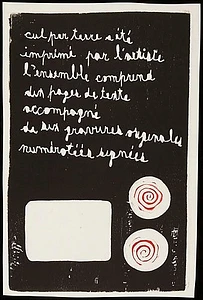 cul par terre a été
imprimé par l'artiste
l'ensemble comprend
dix pages de texte
accompagné
de six gravures originales
numérotées signées